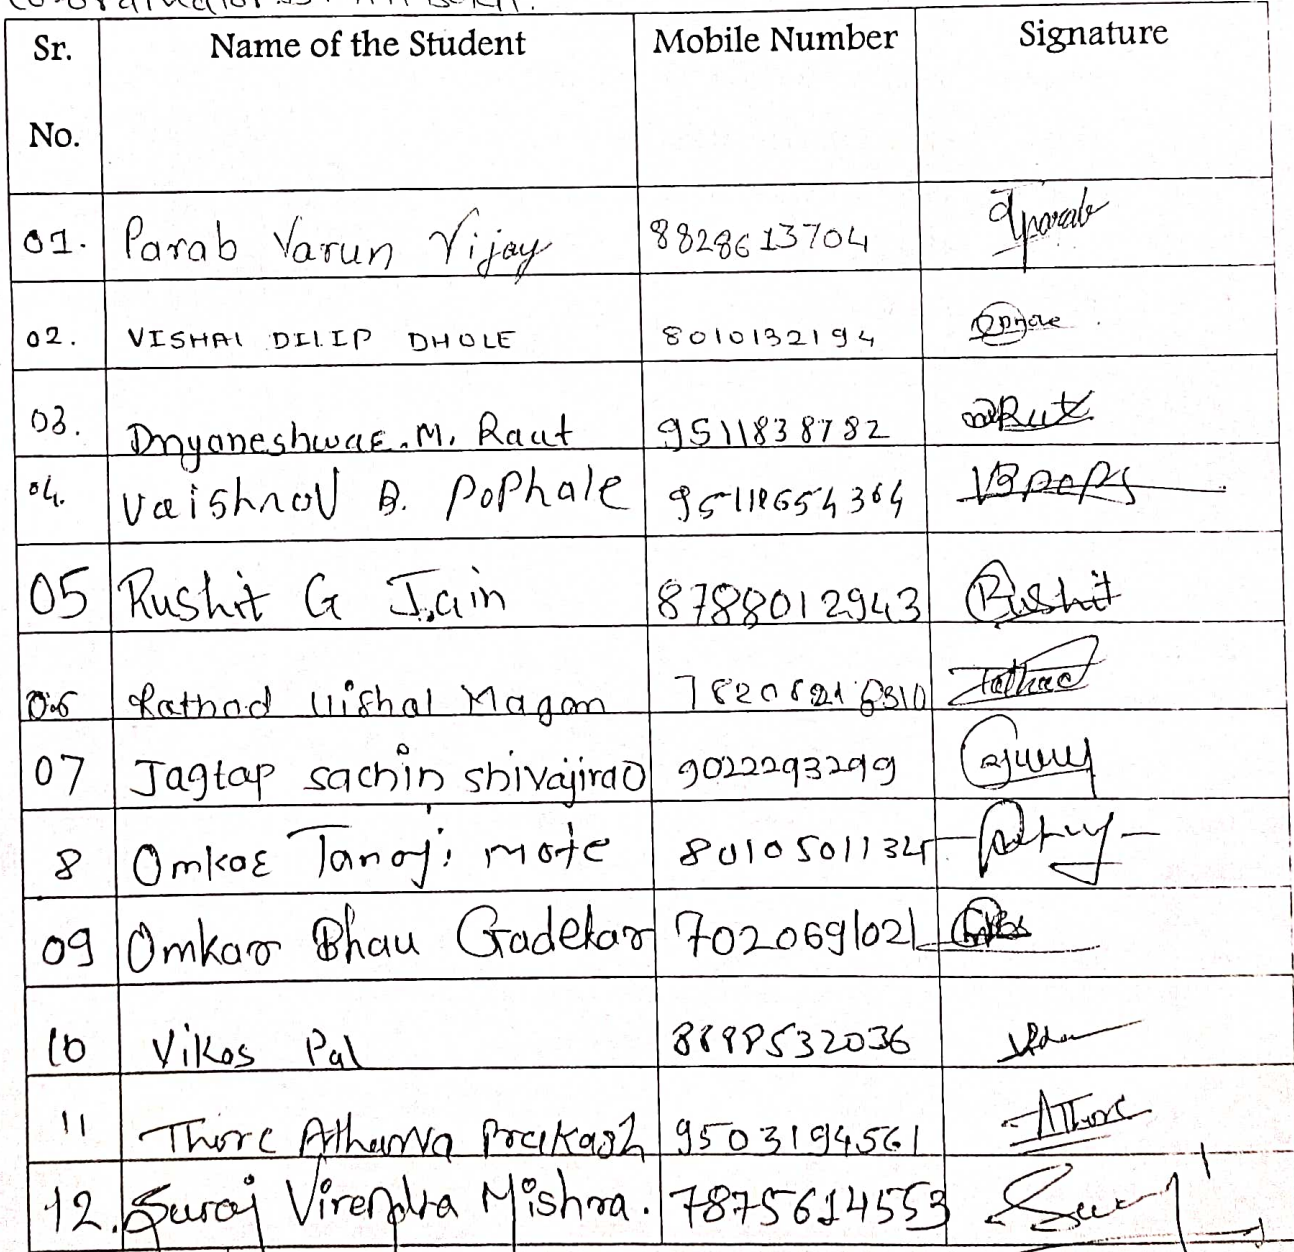 Sr. No. Name of the Student Mobile Number Signature
01. Parab Varun Vijay 8828613704 Vparab
02. VISHAL DILIP DHOLE 8010132194
03. Dnyaneshwar. M. Raut 9511838782
04. Vaishnav B. Pophale
05 Rushit G Jain 8788012943 Rushit
06 Rathod Vishal Magan Rathod
07 Jagtap sachin shivajirao 9022293299
8 Omkar Tanaji mote
09 Omkar Bhau Gadekar 7020691021
10 Vikas Pal
11 Thore Atharva Prakash 9503194561 AThore
12. Suraj Virendra Mishra. 7875614553 Suraj